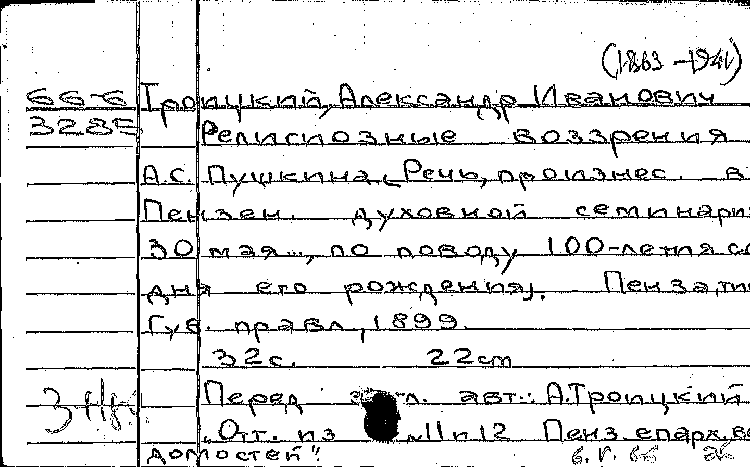 (1863-1941)
66-6 Троицкий, Александр Иванович
3285 Религиозные воззрения
А.С. Пушкина. (Речь, произнес. в
Пензен. духовной семинари
30 мая..., по поводу 100-летия со
дня его рождения). Пенза, ти
Губ. правл., 1899.
32с. 22cm
Перед загл. авт.: А.Троицкий
"Отт. из №11 и 12 Пенз. епарх. ве
домостей".